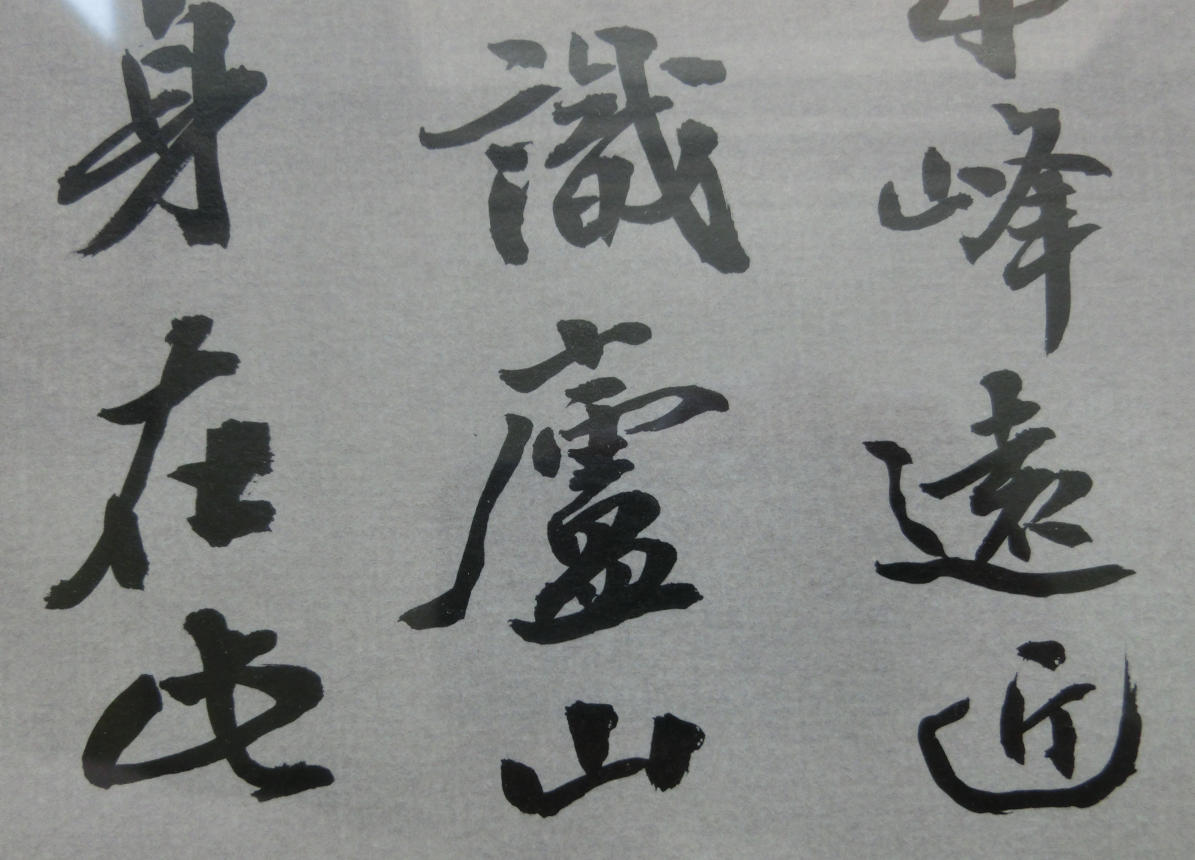 峰遠近
識廬山
身在此